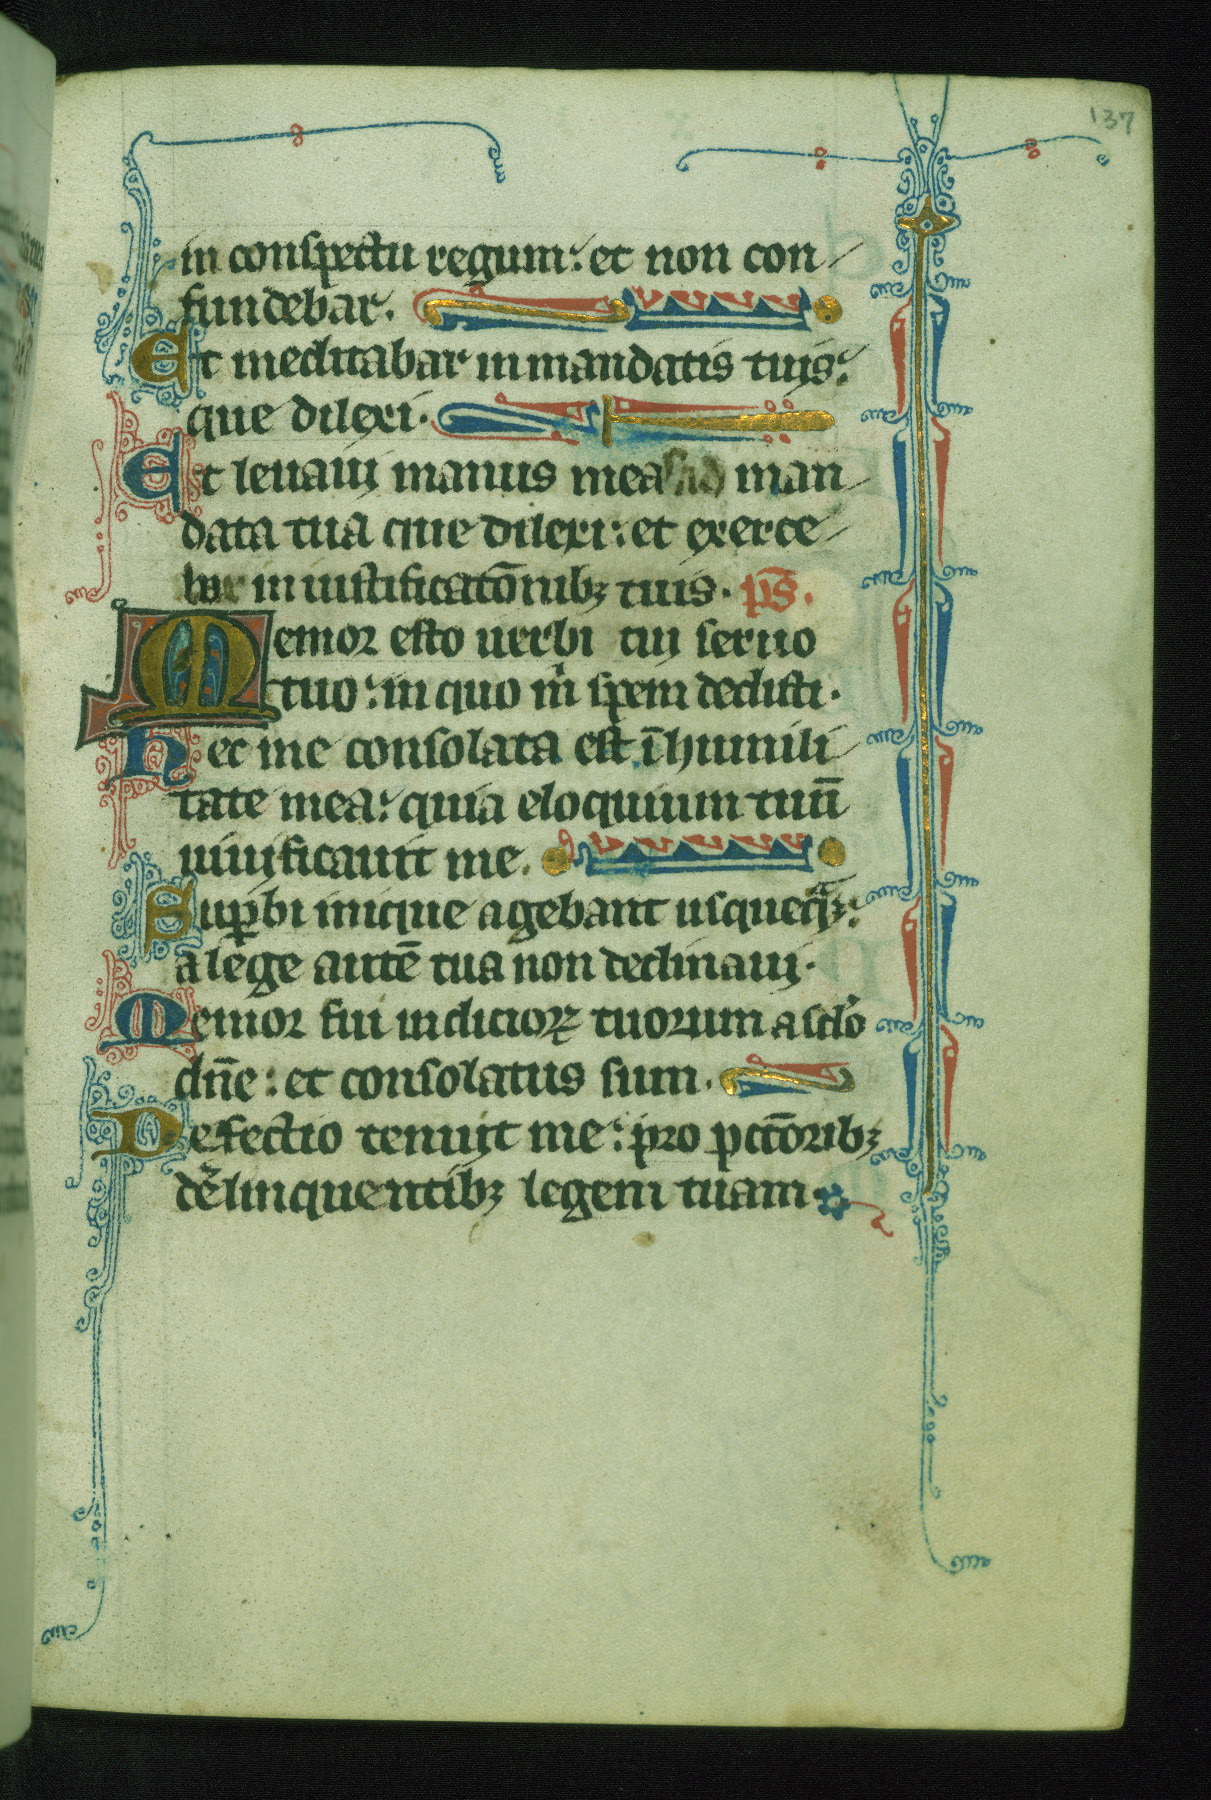 137
in conspectu regum: et non con
fundebar.
Et meditabar in mandatis tuis:
que dilexi.
Et leuaui manus meas ad man
data tua que dilexi: et exerce
bar in iustificatōnibꝫ tuis. p̄s.
Memor esto uerbi tui seruo
tuo: in quo mͥ spem dedisti.
Hec me consolata est ī humili
tate mea: quia eloquium tuū
uiuificauit me.
Suꝑbi inique agebant usquequaꝫ:
a lege autē tua non declinaui.
Memor fui iudicioꝝ tuorum a sclo
dn̄e: et consolatus sum.
Defectio tenuit me: pro pctōribꝫ
derelinquentibꝫ legem tuam.